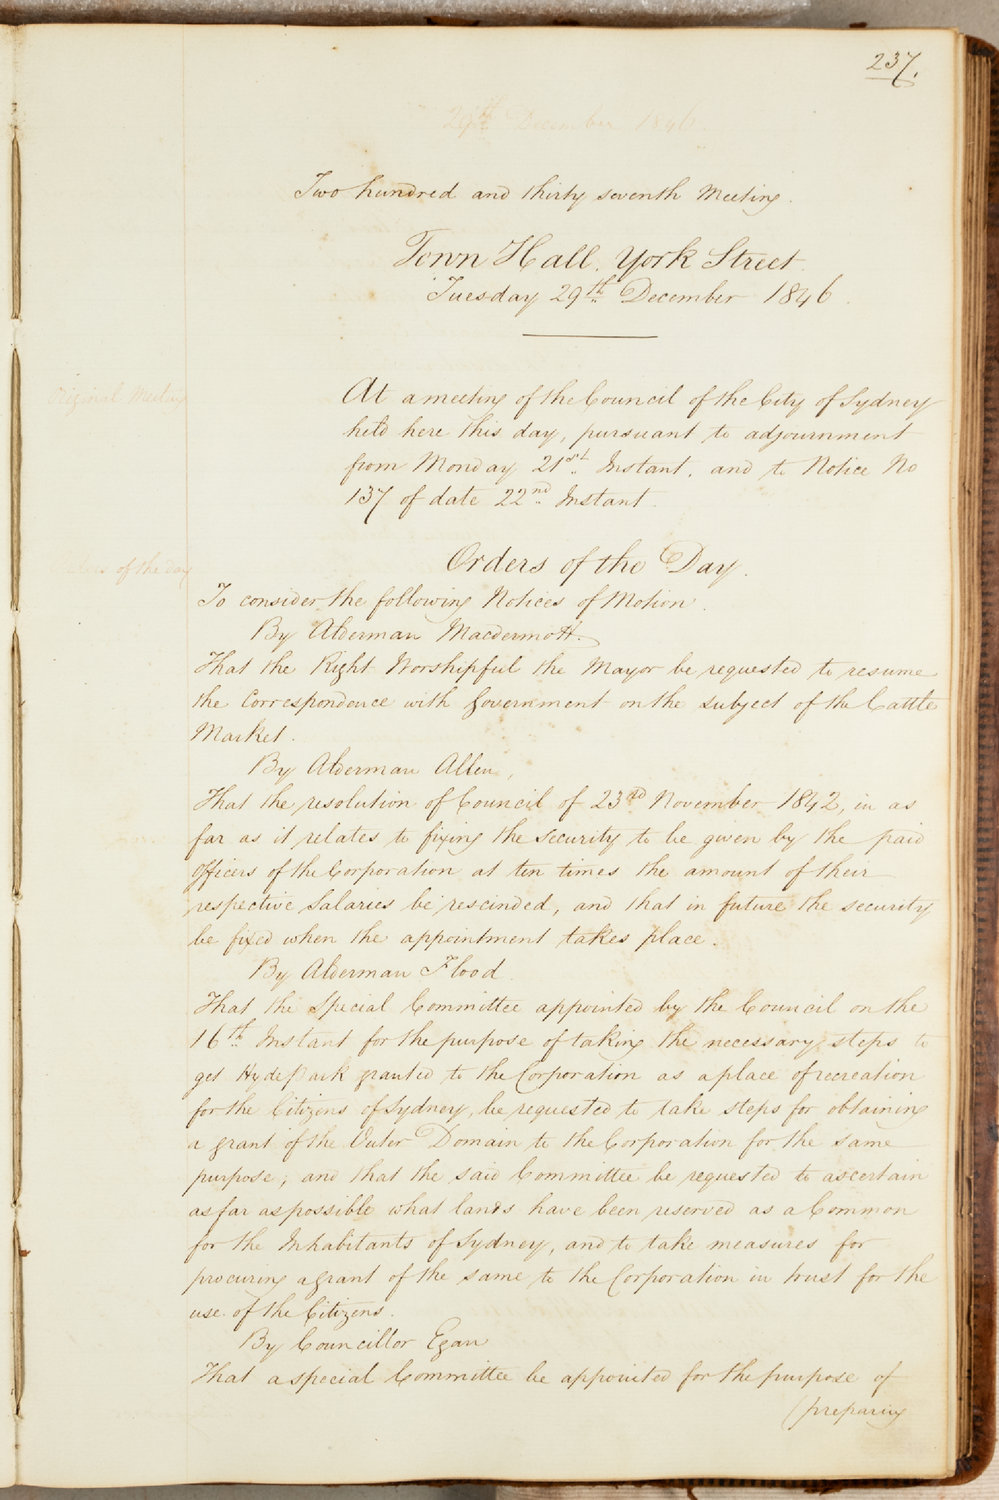 237.
29th December 1846.
Two hundred and thirty seventh Meeting.
Town Hall. York Street.
Tuesday 29th December 1846.
Original Meeting
At a meeting of the Council of the City of Sydney
held here this day, pursuant to adjournment
from Monday 21st Instant, and to Notice No
137 of date 22nd Instant.
Orders of the Day.
of the day
To consider the following Notices of Motion.
By Alderman Macdermott.
That the Right Worshipful the Mayor be requested to resume
the Correspondence with Government on the subject of the Cattle
Market.
By Alderman Allen,
That the resolution of Council of 23rd November 1842, in as
far as it relates to fixing the security to be given by the paid
Officers of the Corporation at ten times the amount of their
respective Salaries be rescinded, and that in future the security
be fixed when the appointment takes place.
By Alderman Flood.
That the Special Committee appointed by the Council on the
16th Instant for the purpose of taking the necessary steps to
get Hyde Park granted to the Corporation as a place of recreation
for the Citizens of Sydney, be requested to take steps for obtaining
a grant of the Outer Domain to the Corporation for the same
purpose; and that the said Committee be requested to ascertain
as far as possible what lands have been reserved as a Common
for the Inhabitants of Sydney, and to take measures for
procuring a grant of the same to the Corporation in trust for the
use of the Citizens.
By Councillor Egan
That a special Committee be appointed for the purpose of
(preparing